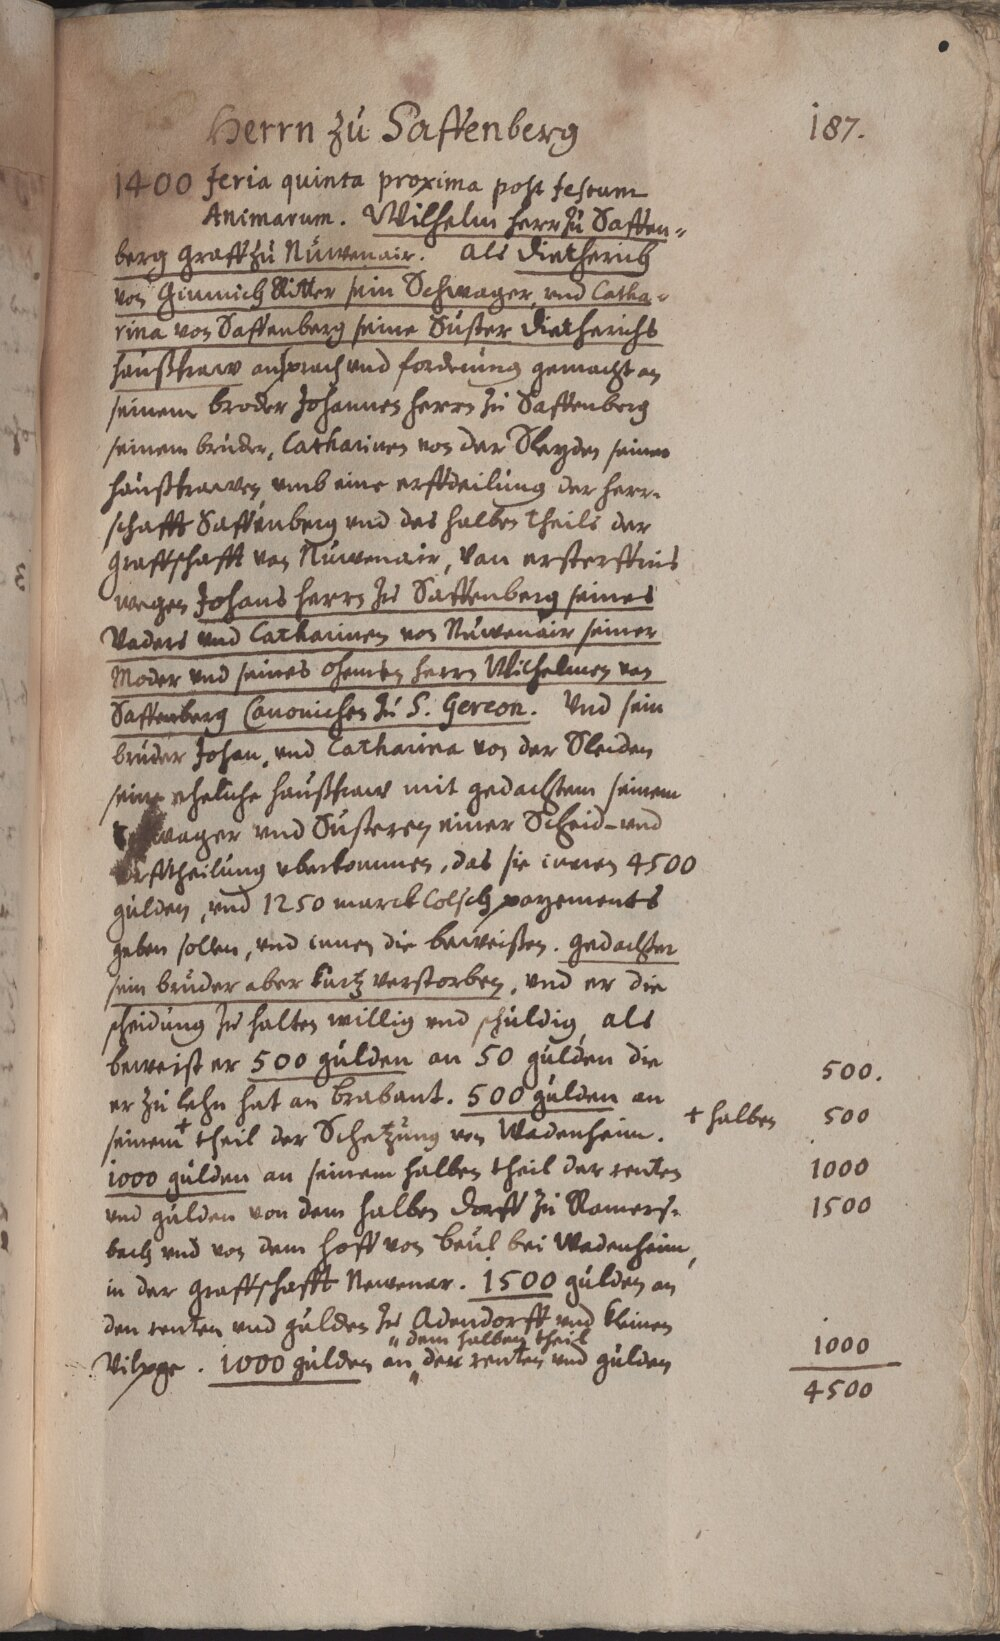 Herrn zu Saffenberg
187.
1400 feria quinta proxima post festum
Animarum. Wilhelm herr zu Saffen-
berg graff zu Nuwenair. als Dietherich
von Gimnich Ritter sein Schwager, vnd Catha-
rina von Saffenberg seine Suster Dietherichs
haußfraw ansprach vnd forderung gemacht an
seinem broder Johannes herrn zu Saffenberg
seinem bruder, Catharinen von der Sleyden seiner
haußfrawen, vmb eine erffdeilung der herr-
schafft Saffenberg vnd des halben theils der
graffschafft von Nuwenair, van ersterffnis
wegen Johans herrn zu Saffenberg seines
Vaders vnd Catharinen von Nuwenair seiner
Moder vnd seines ohemen herrn Wilhelmen van
Saffenberg Canonichen zu S. Gereon. Vnd sein
bruder Johan, vnd Catharina von der Sleiden
seine eheliche haußfraw mit gedachtem seinem
Schwager vnd Susteren einer Scheid- vnd
Erfftheilung vberkommen, das sie innen 4500
gulden, vnd 1250 marck Colsch payements
geben sollen, vnd innen die beweißen. gedachter
sein bruder aber kurtz verstorben, vnd er die
scheidung zu halten willig vnd schuldig, als
beweist er 500 gulden an 50 gulden die
500.
er zu lehn hat an Brabant. 500 gulden an
seinem + theil der Schetzung von Wadenheim.
+ halben 500
1000 gulden an seinem halben theil der renten
1000
vnd gulden von dem halben dorff zu Ramers-
1500
bach vnd von dem hoff von beul bei Wadenheim,
in der graffschafft Newenar. 1500 gulden an
den renten vnd gulden zu Adendorff vnd kleinen
" dem halben theil
Vilppe. 1000 gulden an " der renten vnd gulden
1000
4500